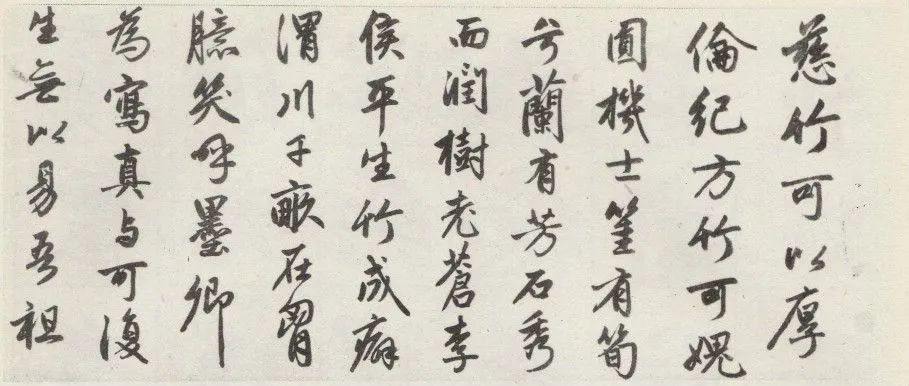 慈竹可以厚
倫紀方竹可媿
圓機士筀有筍
兮蘭有芳石秀
而潤樹老蒼李
侯平生竹成癖
渭川千畝在胷
臆笑呼墨卿
為寫真与可復
生無以易吾祖